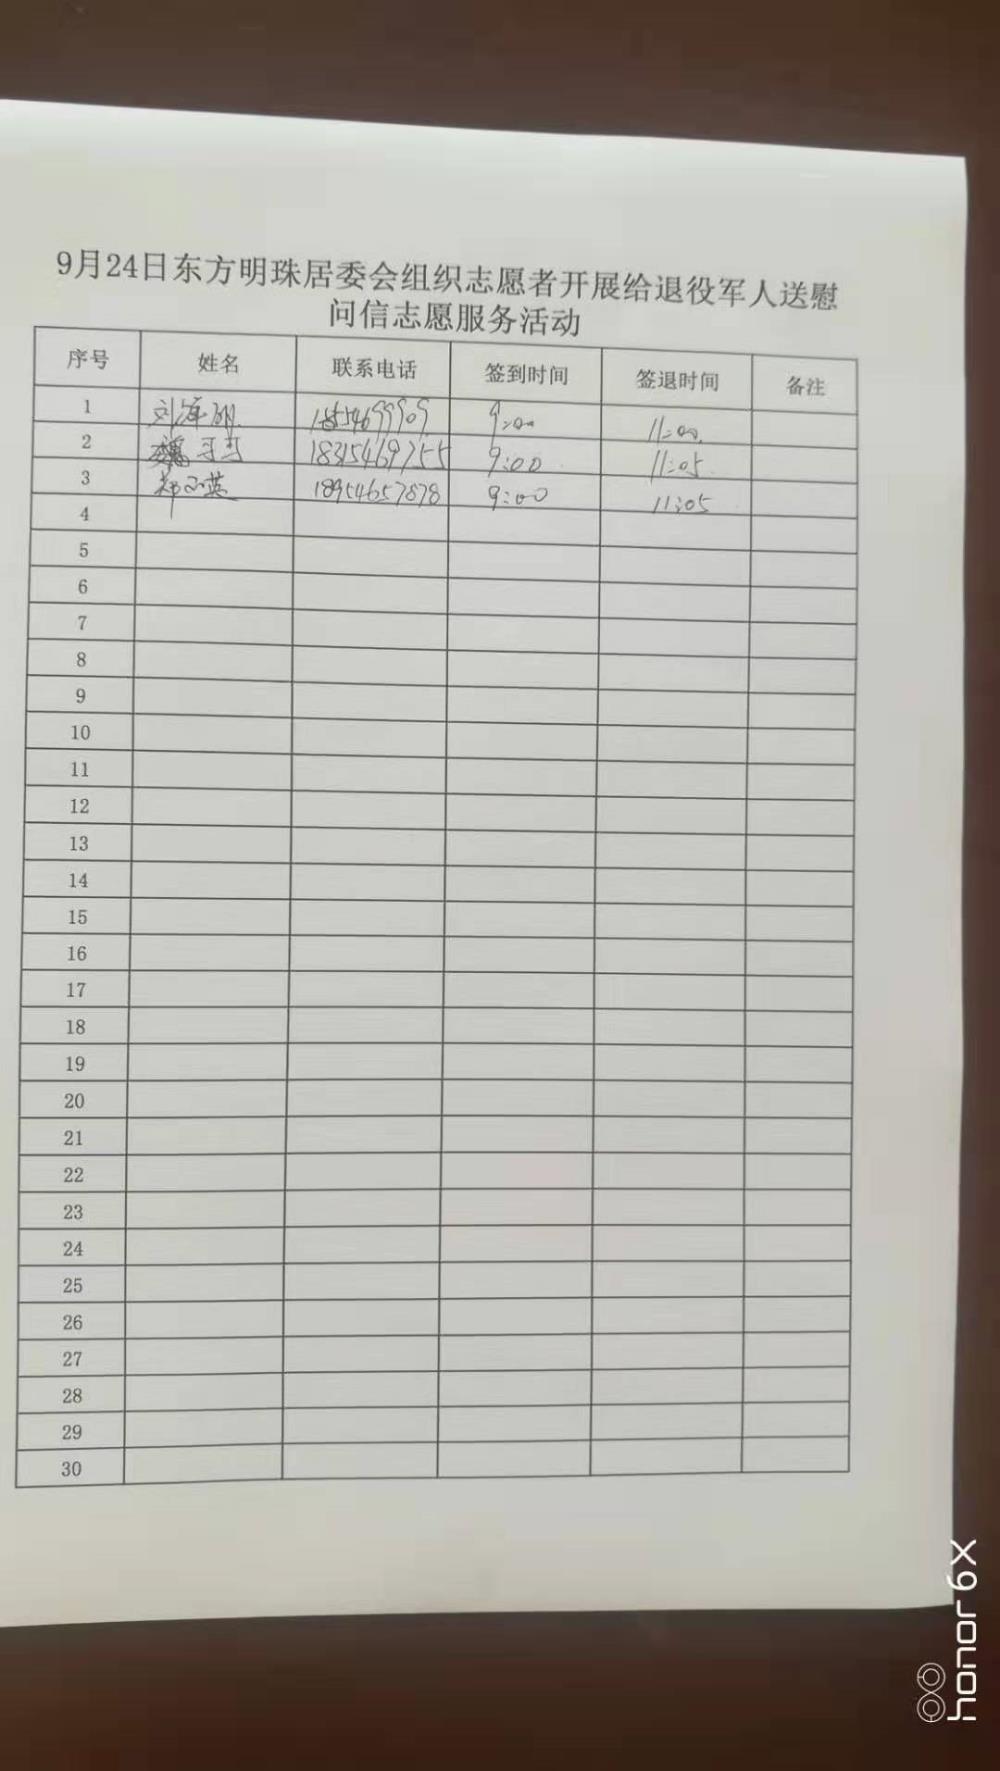 9月24日东方明珠居委会组织志愿者开展给退役军人送慰
问信志愿服务活动
序号 姓名 联系电话 签到时间 签退时间 备注
1 刘海 9:00 11:00
2 魏可可 18315469755 9:00 11:05
3 英 18954657878 9:00 11:05
4
5
6
7
8
9
10
11
12
13
14
15
16
17
18
19
20
21
22
23
24
25
26
27
28
29
30
honor 6X